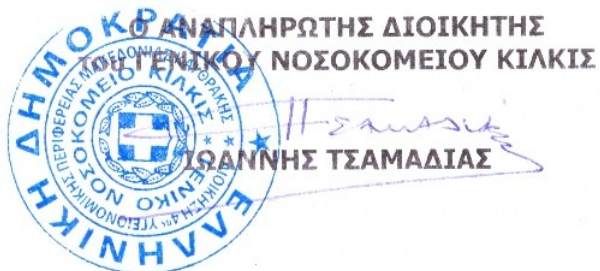 Ο ΑΝΑΠΛΗΡΩΤΗΣ ΔΙΟΙΚΗΤΗΣ
του ΓΕΝΙΚΟΥ ΝΟΣΟΚΟΜΕΙΟΥ ΚΙΛΚΙΣ
ΙΩΑΝΝΗΣ ΤΣΑΜΑΔΙΑΣ
ΕΛΛΗΝΙΚΗ ΔΗΜΟΚΡΑΤΙΑ
ΔΙΟΙΚΗΣΗ 4ης ΥΓΕΙΟΝΟΜΙΚΗΣ ΠΕΡΙΦΕΡΕΙΑΣ ΜΑΚΕΔΟΝΙΑΣ ΘΡΑΚΗΣ
ΓΕΝΙΚΟ ΝΟΣΟΚΟΜΕΙΟ ΚΙΛΚΙΣ